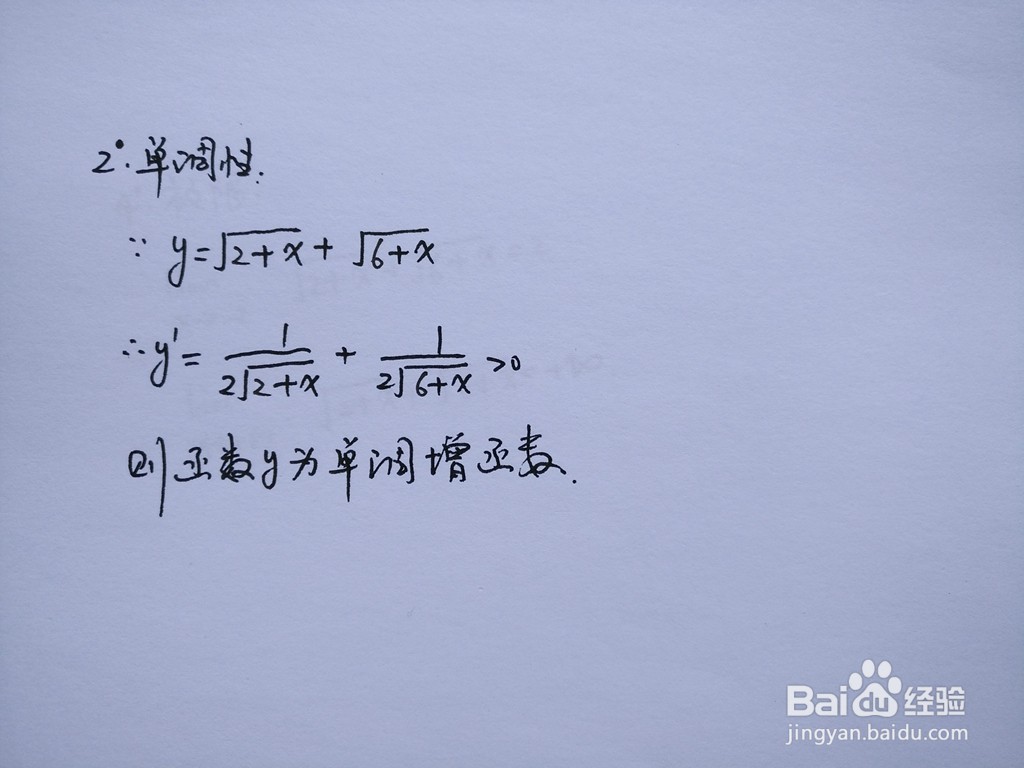 2°. 单调性.
∵ y=√(2+x) + √(6+x)
∴ y' = 1/(2√(2+x)) + 1/(2√(6+x)) >0
则函数y为单调增函数.
Bai du 经验
jingyan.baidu.com